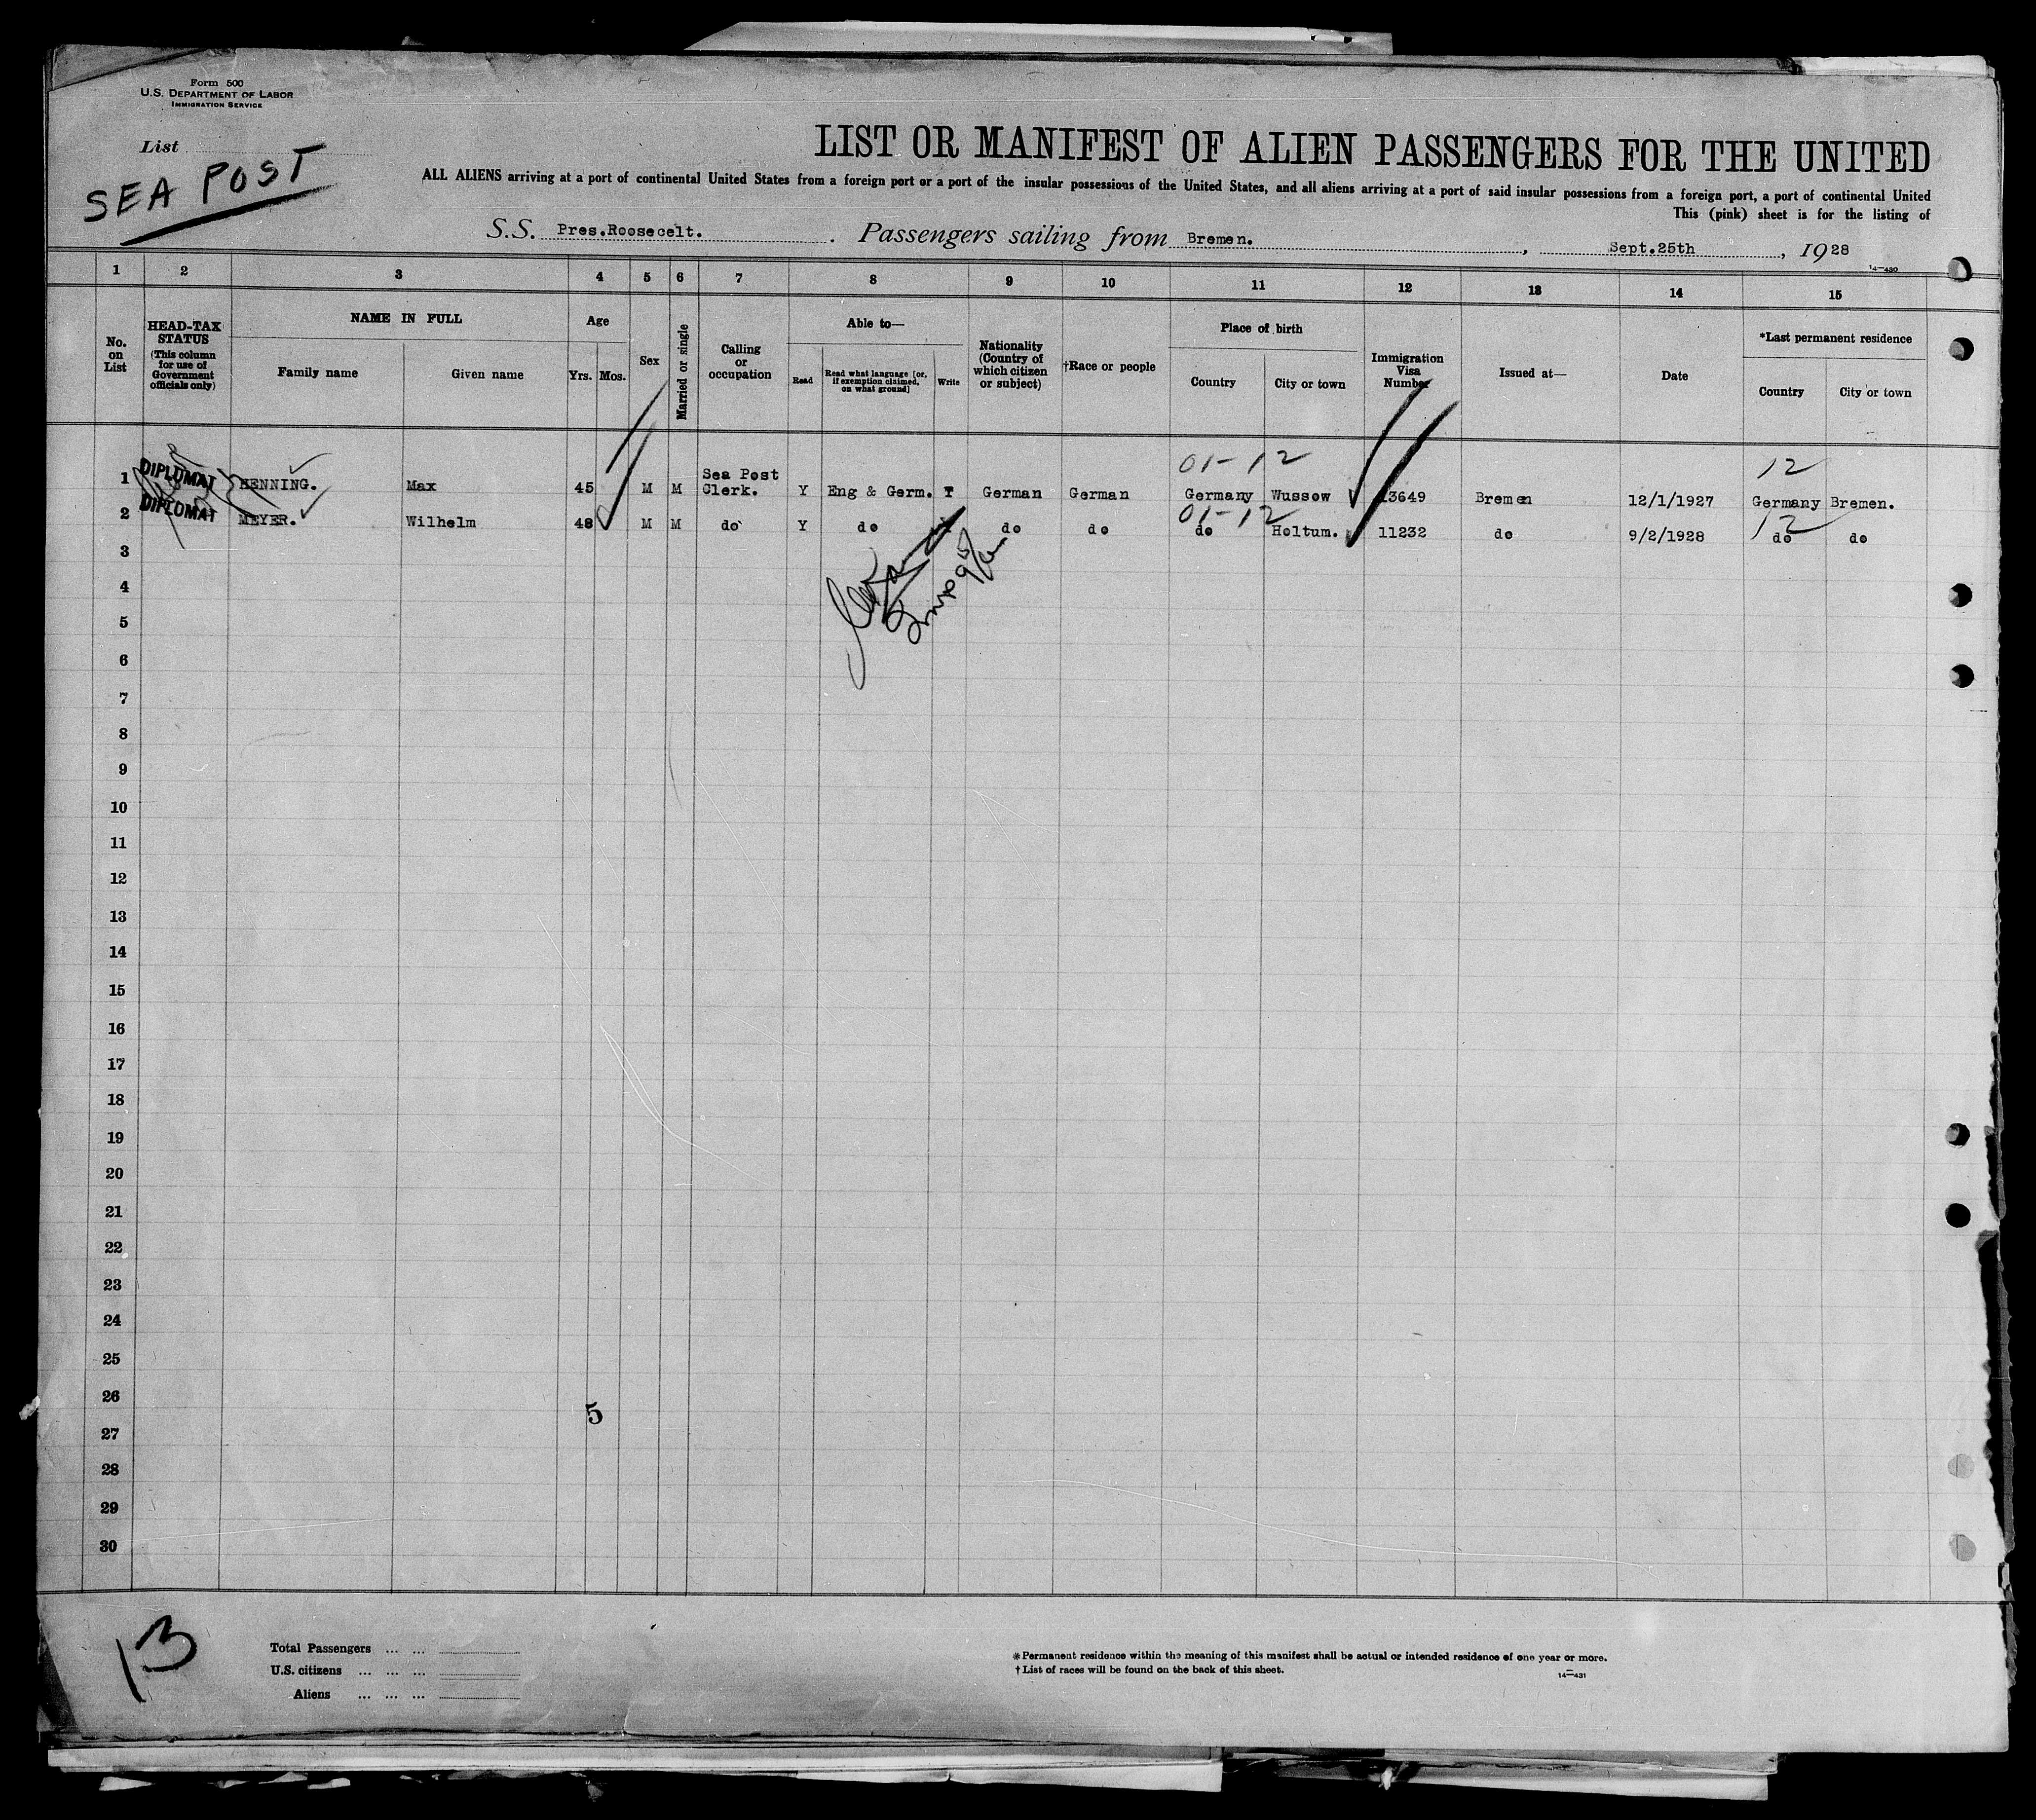 Form 500
U.S. DEPARTMENT OF LABOR
IMMIGRATION SERVICE
List
SEA POST
LIST OR MANIFEST OF ALIEN PASSENGERS FOR THE UNITED
ALL ALIENS arriving at a port of continental United States from a foreign port or a port of the insular possessions of the United States, and all aliens arriving at a port of said insular possessions from a foreign port, a port of continental United
This (pink) sheet is for the listing of
S.S. Pres.Roosecelt. . Passengers sailing from Bremen. , Sept.25th , 1928
14—430
1 2 3 4 5 6 7 8 9 10 11 12 13 14 15
No. on List
HEAD-TAX STATUS
(This column for use of Government officials only)
NAME IN FULL
Family name
Given name
Age
Yrs.
Mos.
Sex
Married or single
Calling or occupation
Able to—
Read
Read what language [or, if exemption claimed, on what ground]
Write
Nationality (Country of which citizen or subject)
†Race or people
Place of birth
Country
City or town
Immigration Visa Number
Issued at—
Date
*Last permanent residence
Country
City or town
01-12 12
1 DIPLOMAT HENNING. Max 45 M M Sea Post Clerk. Y Eng & Germ. Y German German Germany Wussow 13649 Bremen 12/1/1927 Germany Bremen.
01-12 12
2 DIPLOMAT MEYER. Wilhelm 48 M M do Y do do do do Holtum. 11232 do 9/2/1928 do do
3
4
5
6
7
8
9
10
11
12
13
14
15
16
17
18
19
20
21
22
23
24
25
26
5
27
28
29
30
13
Total Passengers ... ...
U.S. citizens ... ... ...
Aliens ... ... ...
* Permanent residence within the meaning of this manifest shall be actual or intended residence of one year or more.
† List of races will be found on the back of this sheet.
14—431